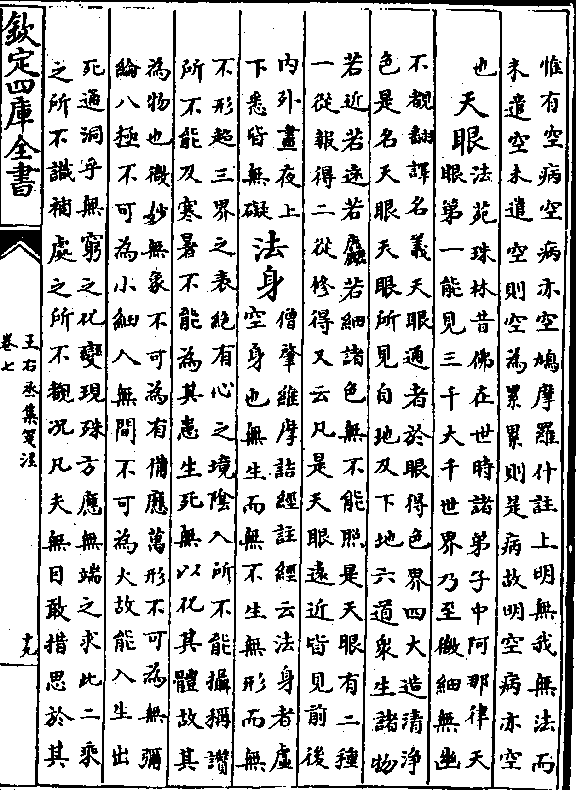 惟有空病空病亦空鳩摩羅什註上明無我無法而
未遣空未遣空則空為累累則是病故明空病亦空
也
天眼
法苑珠林昔佛在世時諸弟子中阿那律天
眼第一能見三千大千世界乃至微細無幽
不覩翻譯名義天眼通者於眼得色界四大造清淨
色是名天眼天眼所見自地及下地六道衆生諸物
若近若遠若麤若細諸色無不能照是天眼有二種
一從報得二從修得又云凡是天眼遠近皆見前後
内外晝夜上
下悉皆無礙
法身
僧肇維摩詰經註經云法身者虛
空身也無生而無不生無形而無
不形超三界之表絶有心之境陰入所不能攝稱讚
所不能及寒暑不能為其患生死無以化其體故其
為物也微妙無象不可為有備應萬形不可為無彌
綸八極不可為小細入無間不可為大故能入生出
死通洞乎無窮之化變現殊方應無端之求此二乘
之所不識補處之所不覩况凡夫無目敢措思於其
欽定四庫全書
王右丞集箋注
卷七
十九